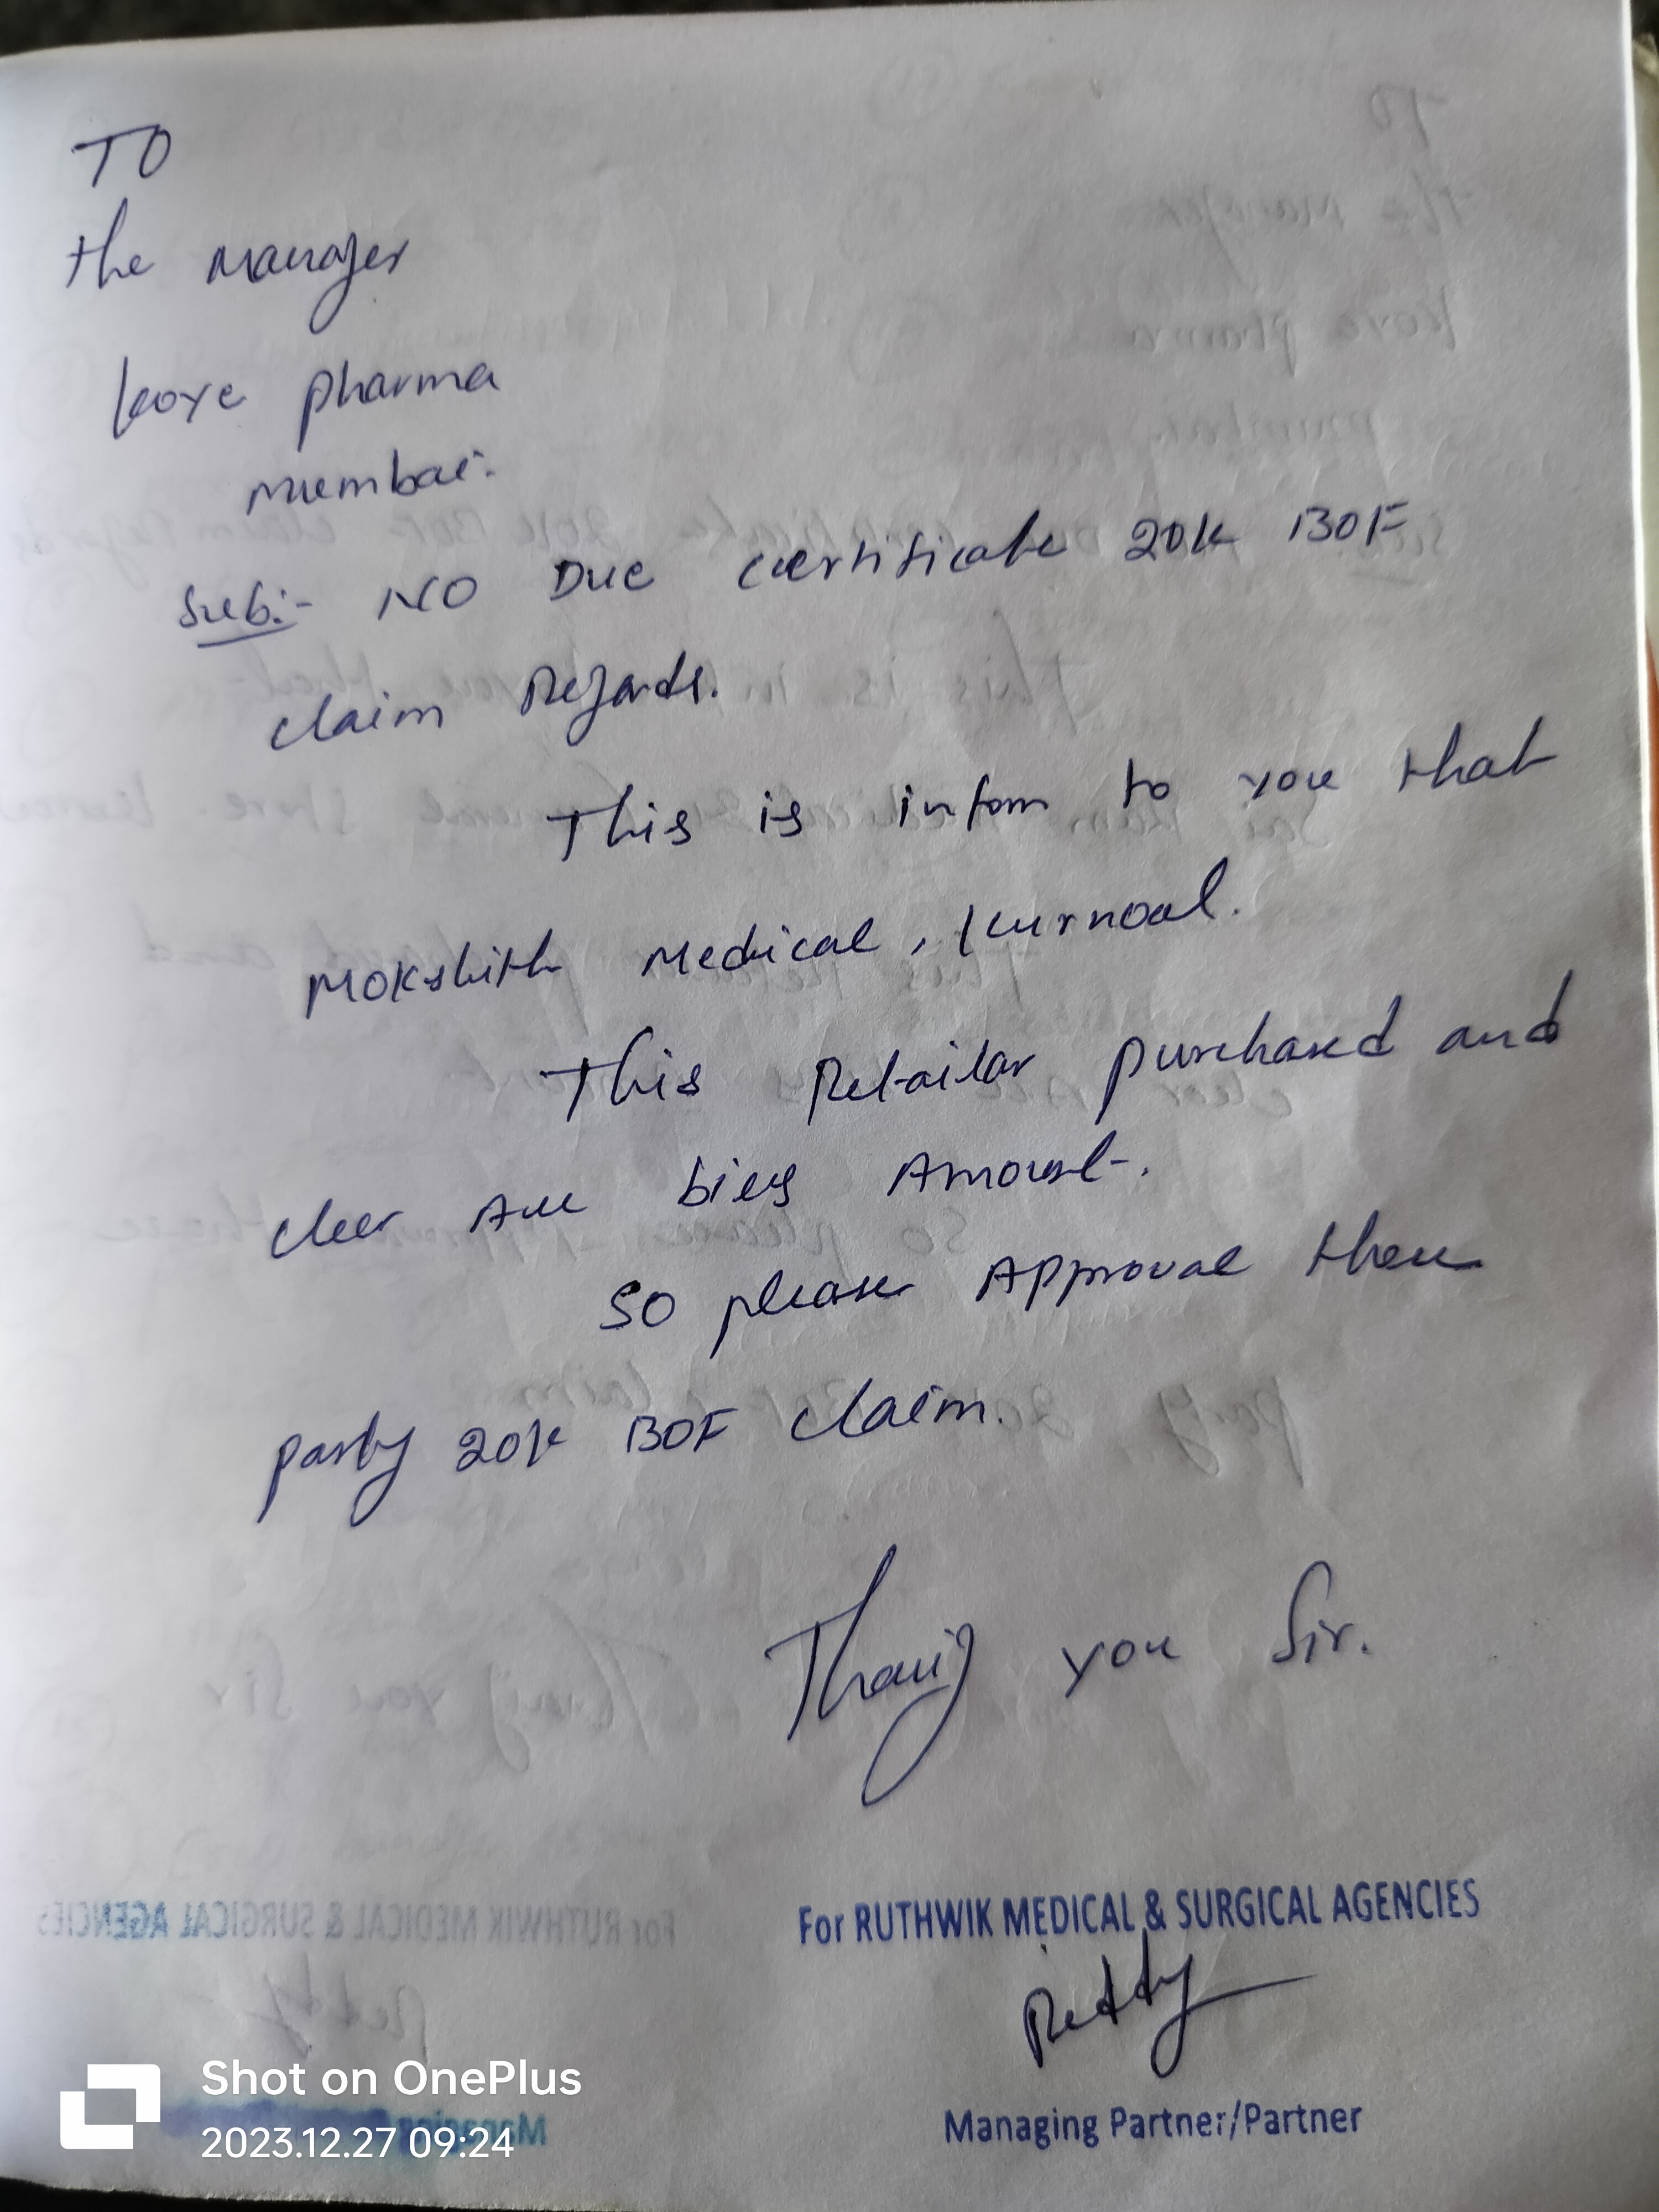 TO
the manager
kore pharma
mumbai.
Sub:- NO Due certificate 20k BOF
claim Regards.
This is inform to you that
Mokshith Medical, Kurnool.
This Retailar purchased and
cleer All bills Amount.
SO please Approval these
party 20k BOF claim.
Thanig you Sir.
For RUTHWIK MEDICAL & SURGICAL AGENCIES
Reddy
Managing Partner/Partner
Shot on OnePlus
2023.12.27 09:24